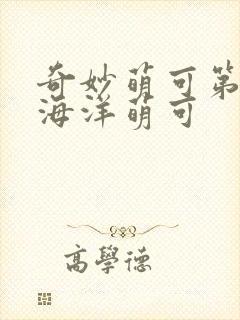 奇妙萌可第
海洋萌可
高學德